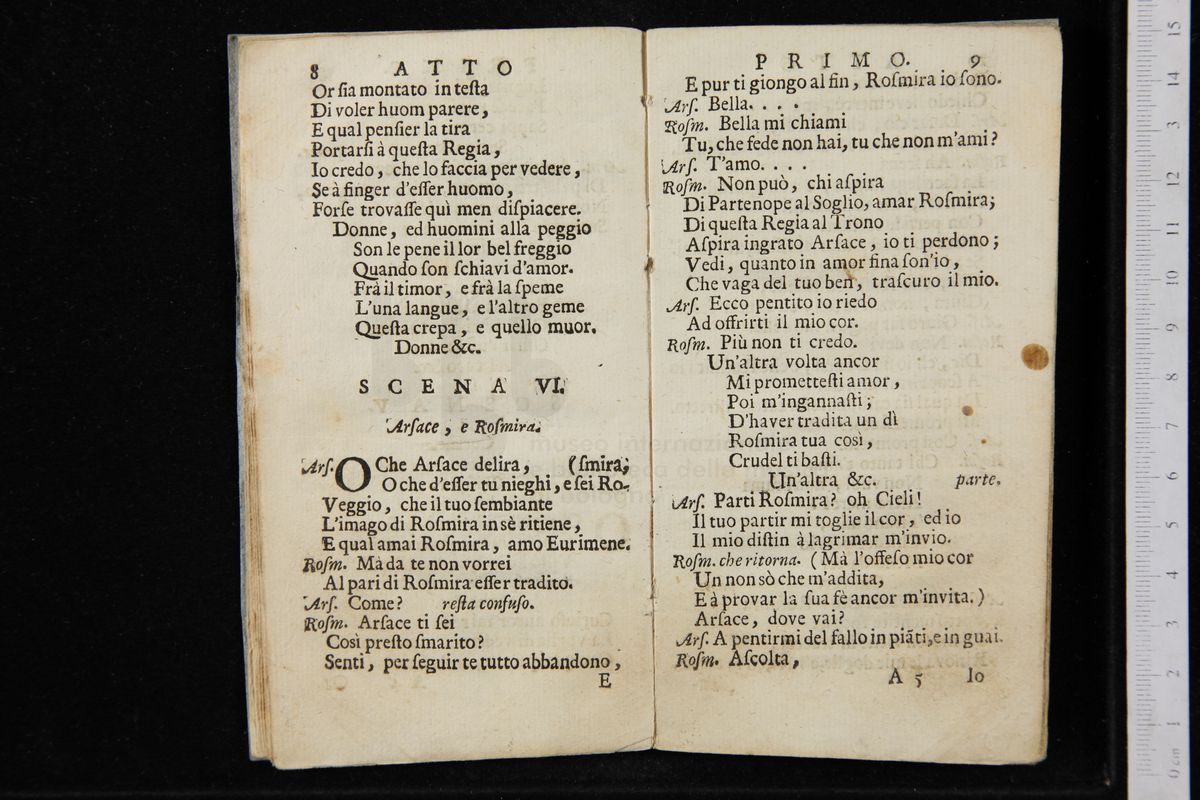 8 ATTO
Or ſia montato in teſta
Di voler huom parere,
E qual penſier la tira
Portarſi à queſta Regia,
Io credo, che lo faccia per vedere,
Se à finger d'eſſer huomo,
Forſe trovaſſe quì men diſpiacere.
Donne, ed huomini alla peggio
Son le pene il lor bel freggio
Quando ſon ſchiavi d'amor.
Frà il timor, e frà la ſpeme
L'una langue, e l'altro geme
Queſta crepa, e quello muor.
Donne &c.
SCENA VI.
Arſace, e Roſmira.
Arſ. O Che Arſace delira, (ſmira;
O che d'eſſer tu nieghi, e ſei Ro-
Veggio, che il tuo ſembiante
L'imago di Roſmira in sè ritiene,
E qual amai Roſmira, amo Eurimene.
Roſm. Mà da te non vorrei
Al pari di Roſmira eſſer tradito.
Arſ. Come? reſta confuſo.
Roſm. Arſace ti ſei
Così preſto ſmarito?
Senti, per ſeguir te tutto abbandono,
E
PRIMO. 9
E pur ti giongo al fin, Roſmira io ſono.
Arſ. Bella. . . .
Roſm. Bella mi chiami
Tu, che fede non hai, tu che non m'ami?
Arſ. T'amo. . . .
Roſm. Non può, chi aſpira
Di Partenope al Soglio, amar Roſmira;
Di queſta Regia al Trono
Aſpira ingrato Arſace, io ti perdono;
Vedi, quanto in amor fina ſon'io,
Che vaga del tuo ben, traſcuro il mio.
Arſ. Ecco pentito io riedo
Ad offrirti il mio cor.
Roſm. Più non ti credo.
Un'altra volta ancor
Mi prometteſti amor,
Poi m'ingannaſti;
D'haver tradita un dì
Roſmira tua così,
Crudel ti baſti.
Un'altra &c. parte.
Arſ. Parti Roſmira? oh Cieli!
Il tuo partir mi toglie il cor, ed io
Il mio diſtin à lagrimar m'invio.
Roſm. che ritorna. (Mà l'offeſo mio cor
Un non sò che m'addita,
E à provar la ſua fè ancor m'invita.)
Arſace, dove vai?
Arſ. A pentirmi del fallo in piāti, e in guai.
Roſm. Aſcolta,
A 5 Io
museo internazionale
0 cm 1 2 3 4 5 6 7 8 9 10 11 12 13 14 15